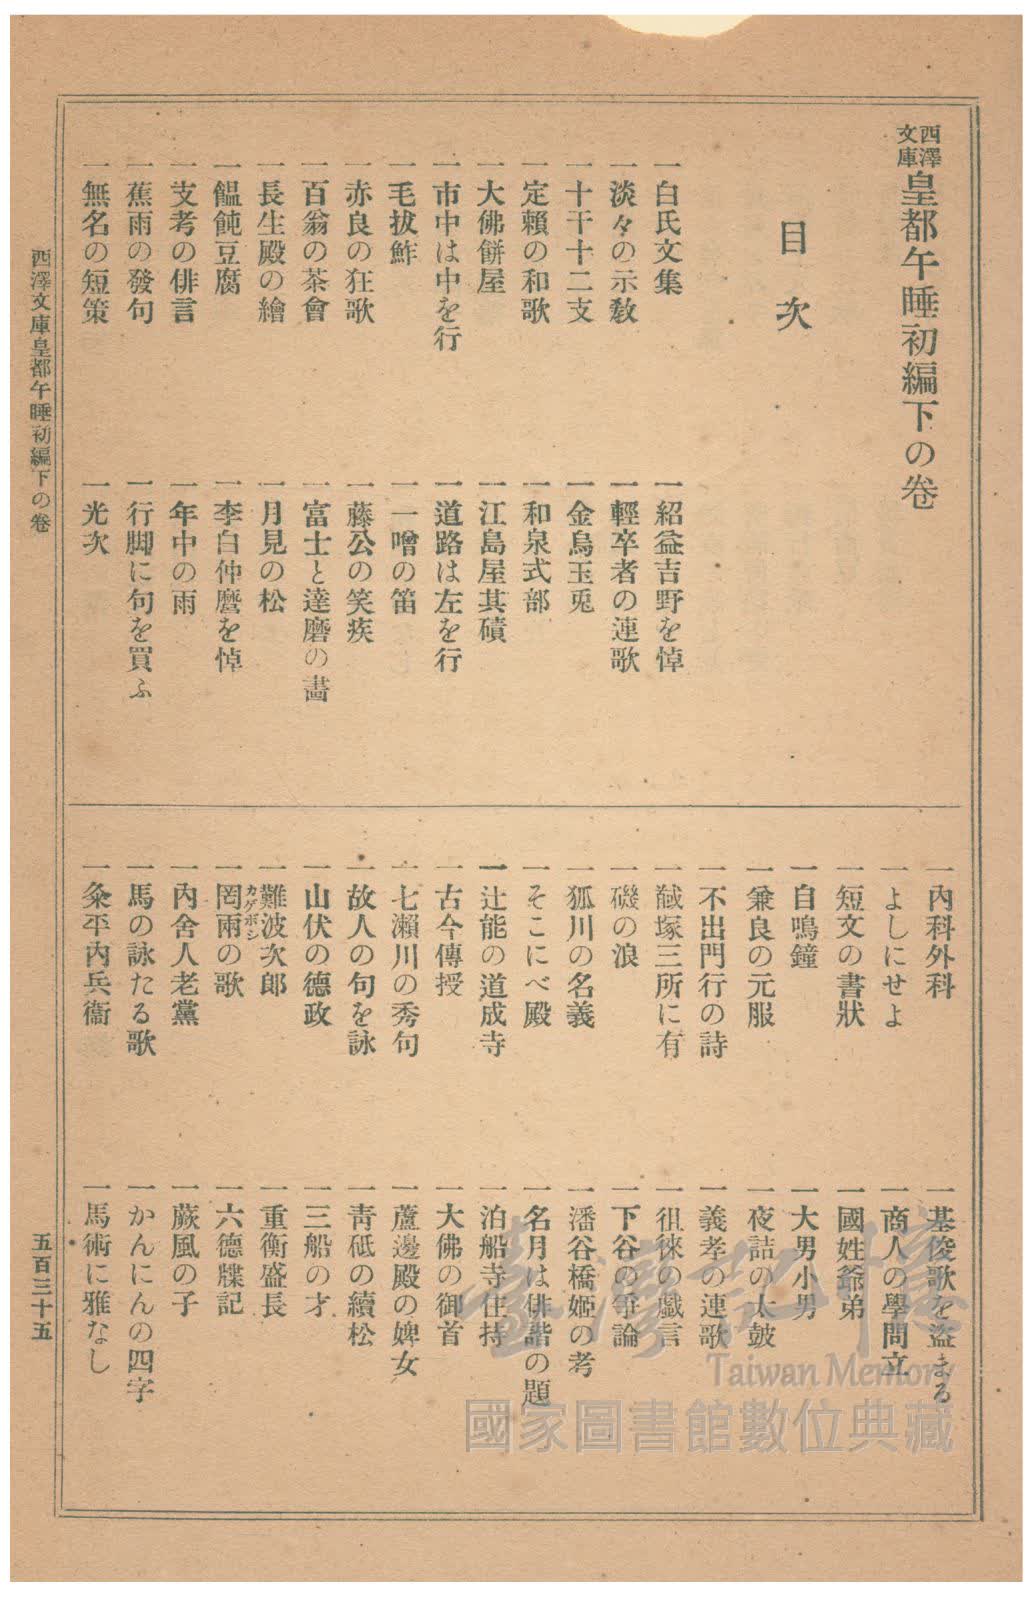 西澤文庫 皇都午睡初編下の卷
目次
一白氏文集
一紹益吉野を悼
一淡々の示敎
一輕卒者の連歌
一十干十二支
一金烏玉兎
一定賴の和歌
一和泉式部
一大佛餅屋
一江島屋其磧
一市中は中を行
一道路は左を行
一毛拔鮓
一一噌の笛
一赤良の狂歌
一藤公の笑疾
一百翁の茶會
一富士と達磨の畵
一長生殿の繪
一月見の松
一饂飩豆腐
一李白仲麿を悼
一支考の俳言
一年中の雨
一蕉雨の發句
一行脚に句を買ふ
一無名の短策
一光次
一內科外科
一基俊歌を盜まる
一よしにせよ
一商人の學問立
一短文の書狀
一國姓爺弟
一自鳴鐘
一大男小男
一兼良の元服
一夜詰の太鼓
一不出門行の詩
一義孝の連歌
一馘塚三所に有
一徂徠の戲言
一磯の浪
一下谷の爭論
一狐川の名義
一潘谷橋姬の考
一そこにべ殿
一名月は俳諧の題
一辻能の道成寺
一泊船寺住持
一古今傳授
一大佛の御首
一七瀨川の秀句
一蘆邊殿の婢女
一故人の句を詠
一靑砥の續松
一山伏の德政
一三船の才
一難波次郎
一重衡盛長
一罔雨の歌
カゲボシ
一六德牒記
一內舍人老黨
一蕨風の子
一馬の詠たる歌
一かんにんの四字
一粂平內兵衞
一馬術に雅なし
西澤文庫皇都午睡初編下の卷
五百三十五
臺灣記憶
Taiwan Memory
國家圖書館數位典藏